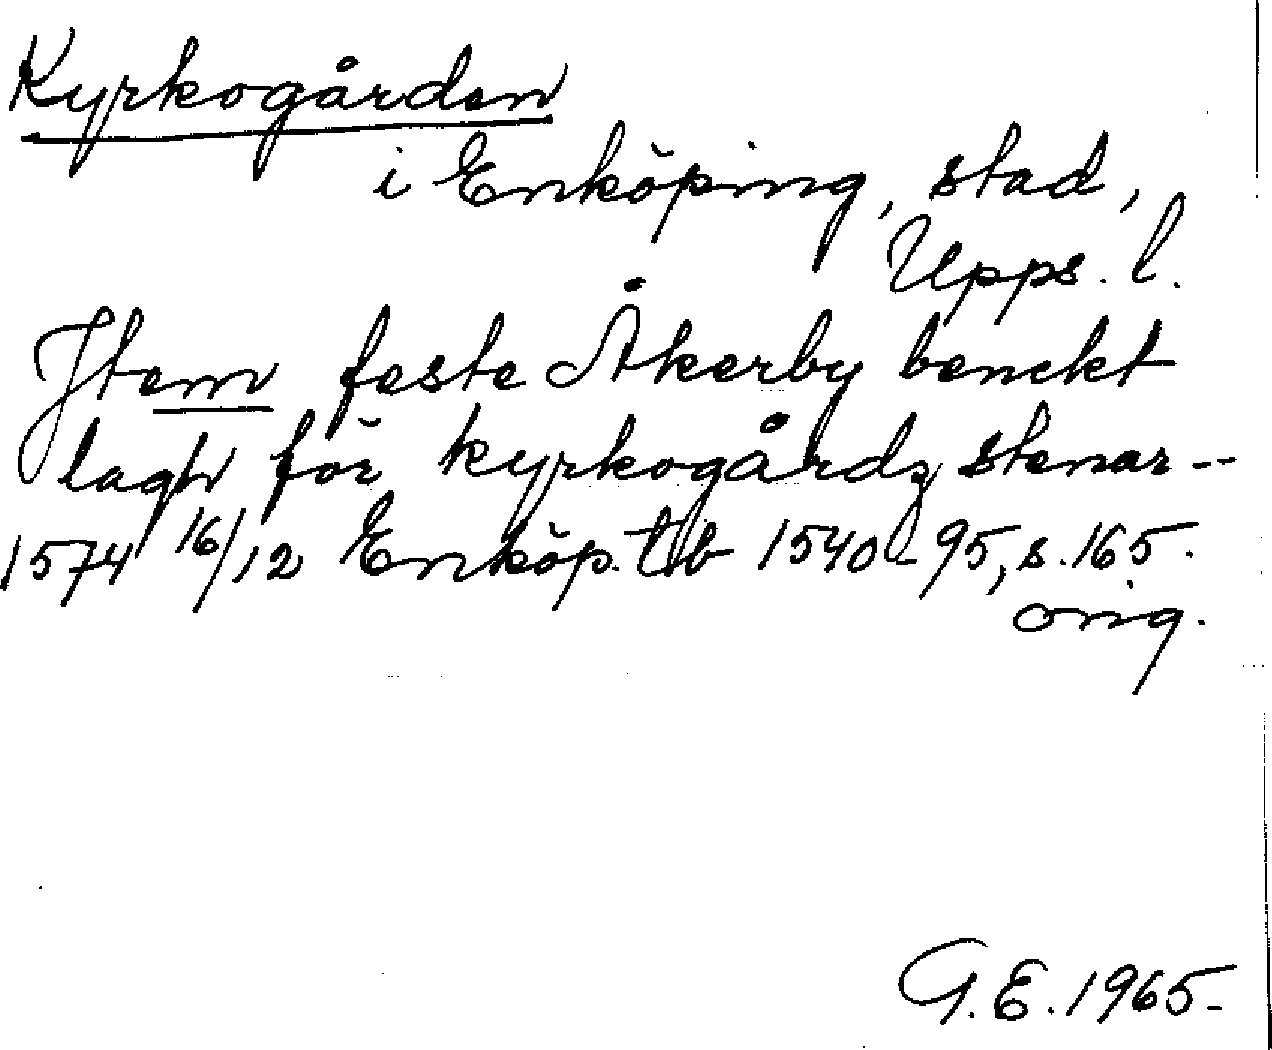 Kyrkogården
i Enköping, stad,
Upps. l.
Jtem feste Åkerby benckt
lagh för kyrkogårdz stenar --
1574 16/12 Enköp. tb 1540-95, s. 165.
orig.
G. E. 1965-